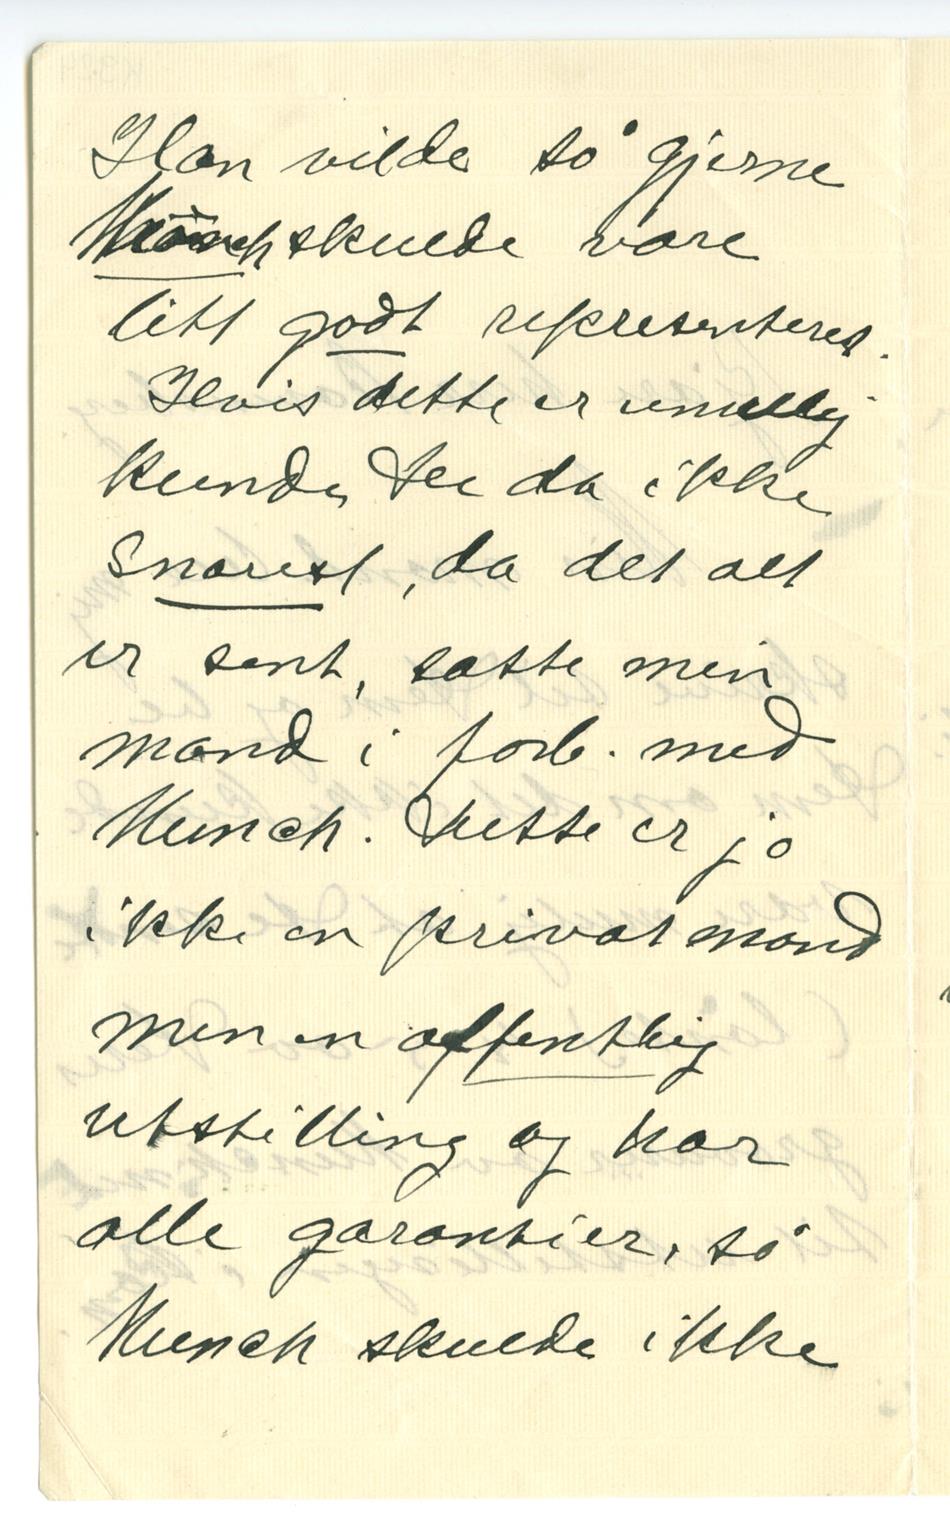 Han vilde så gjerne
Munch skulde være
litt godt representeret.
Hvis dette er umulig
kunde De da ikke
snarest, da det alt
er sent, sætte min
mand i forb. med
Munch. Dette er jo
ikke en privat mand
men en offentlig
utstilling og har
alle garantier, så
Munch skulde ikke